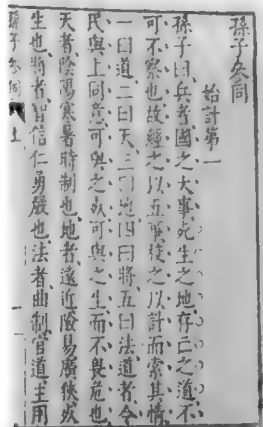 孫子參同
始計第一
孫子曰兵者國之大事死生之地存亡之道不
可不察也故經之以五事校之以計而索其情
一曰道二曰天三曰地四曰將五曰法道者令
民與上同意可與之死可與之生而不畏危也
天者陰陽寒暑時制也地者遠近險易廣狹死
生也將者智信仁勇嚴也法者曲制官道主用
孫子參同 上 一